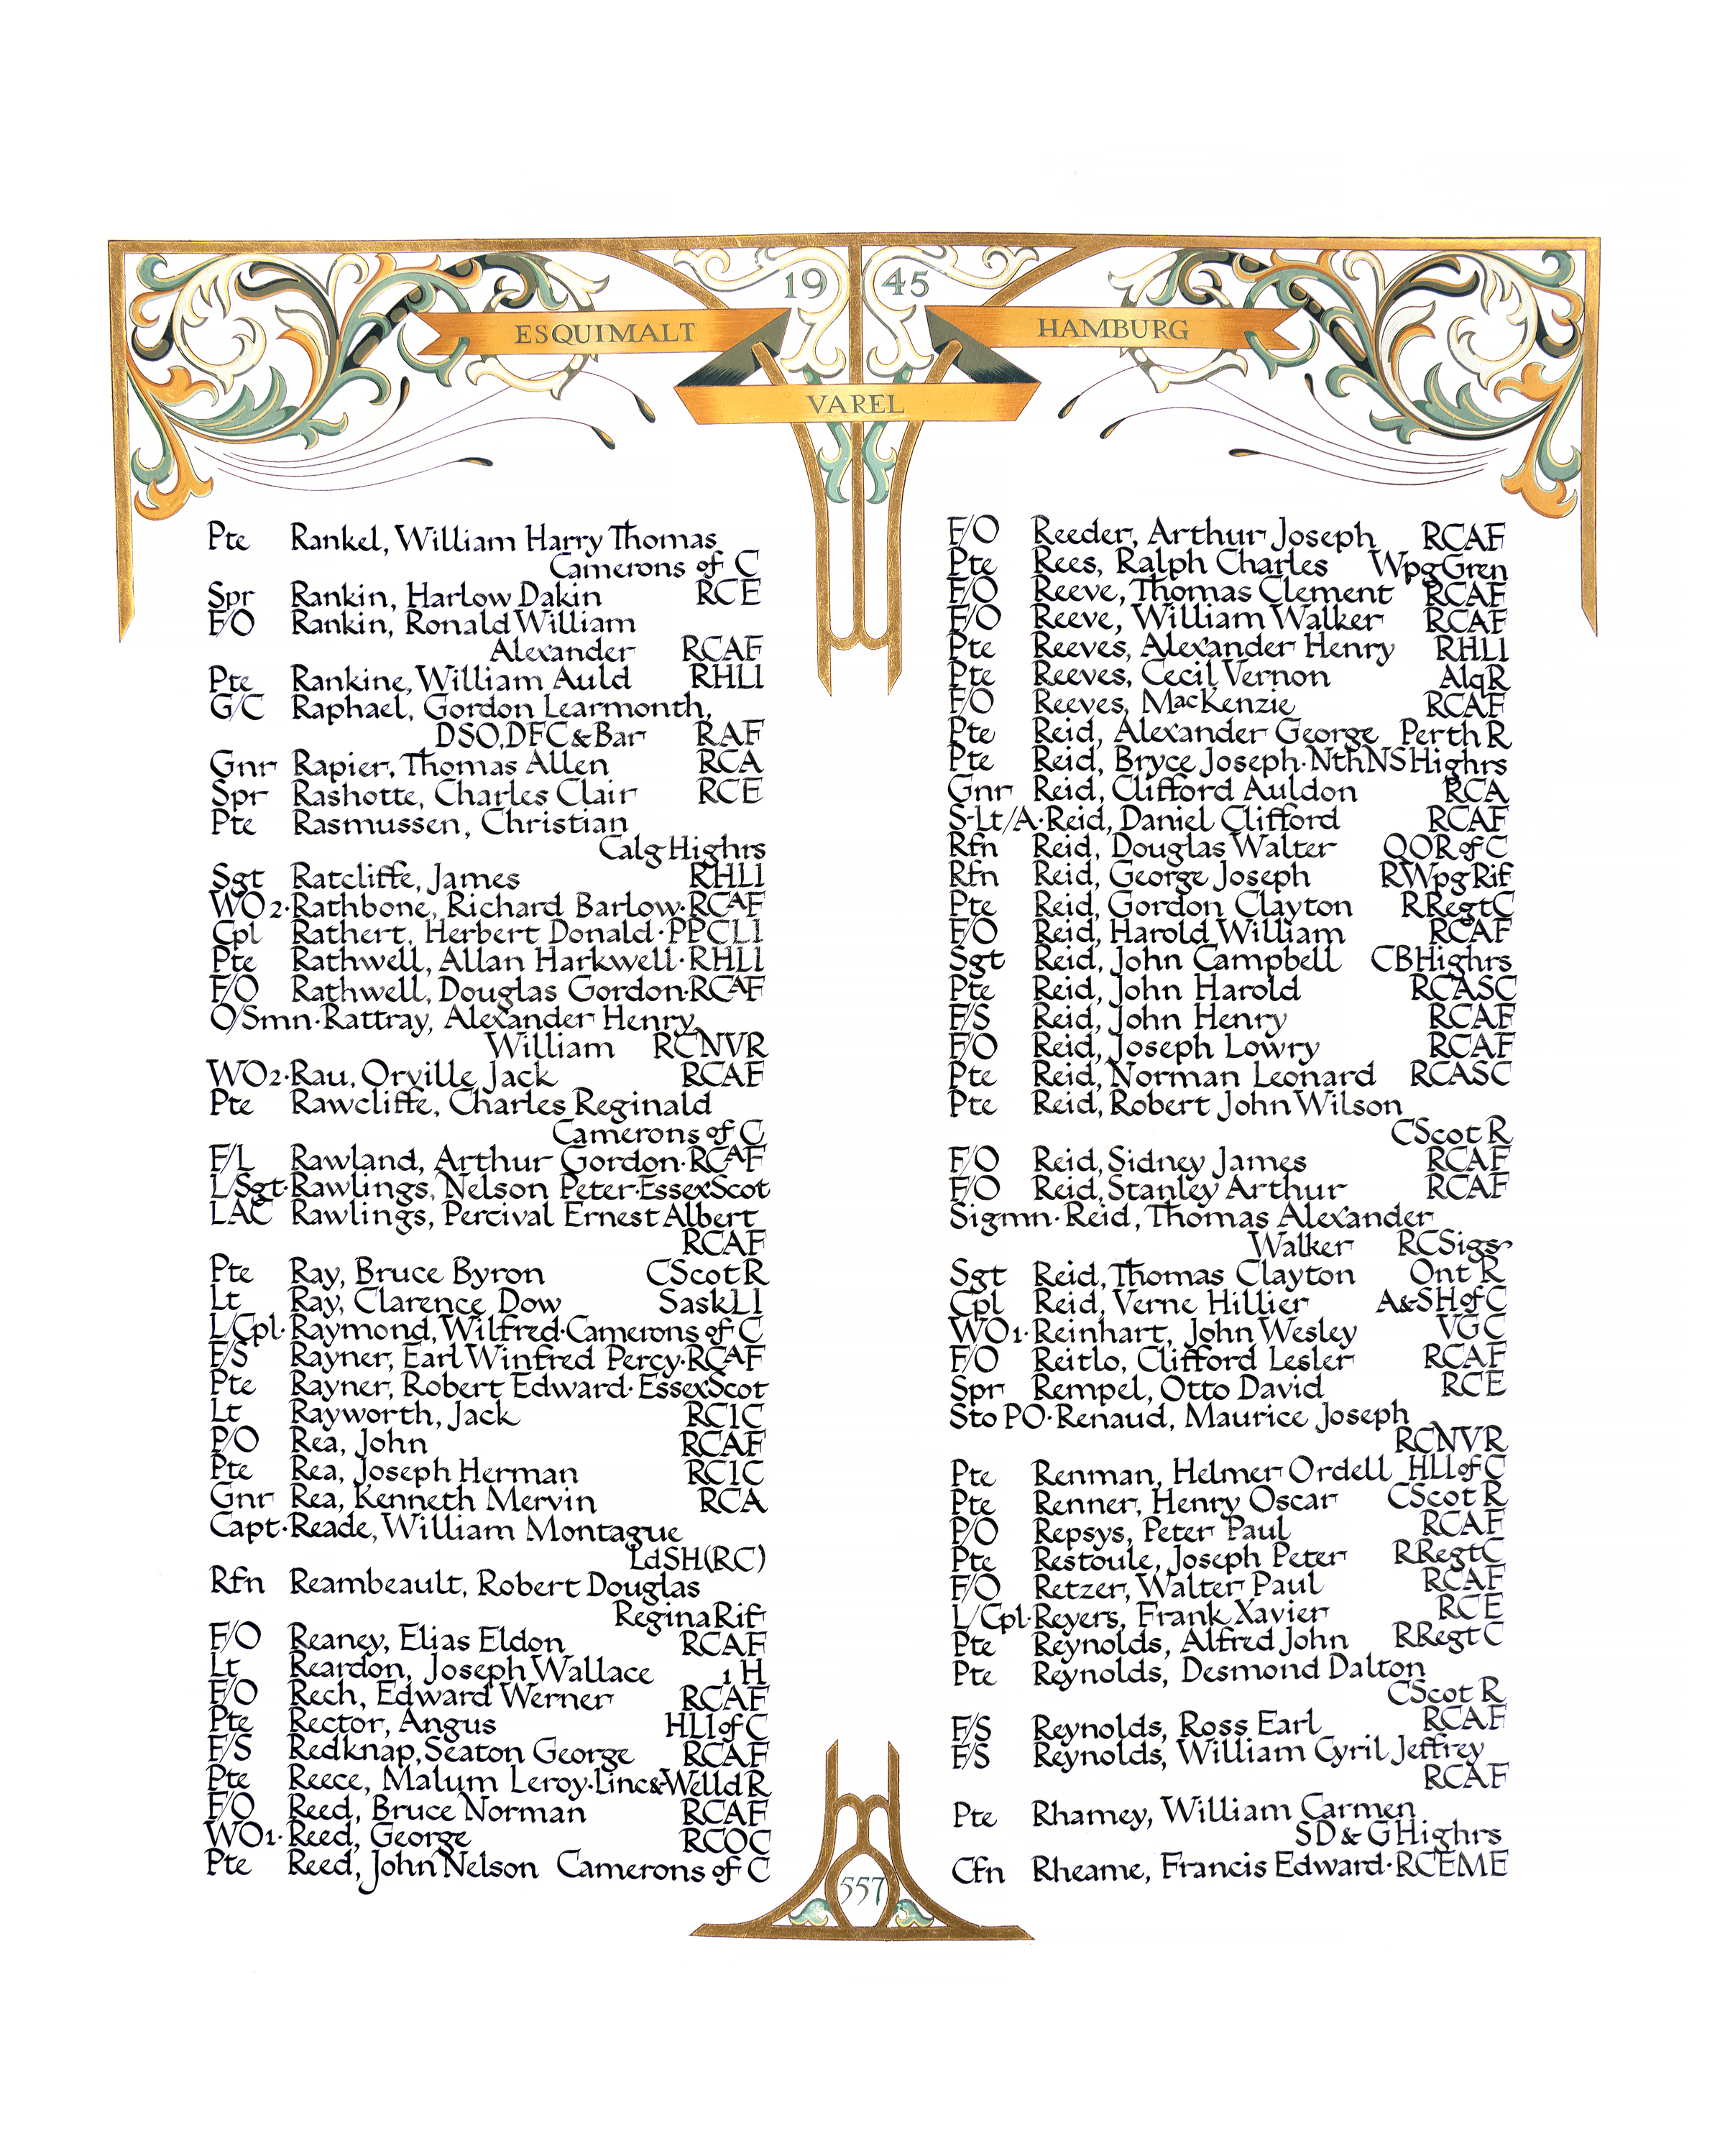 19 45
ESQUIMALT
HAMBURG
VAREL
Pte Rankel, William Harry Thomas
Camerons of C
Spr Rankin, Harlow Dakin RCE
F/O Rankin, Ronald William
Alexander RCAF
Pte Rankine, William Auld RHLI
G/C Raphael, Gordon Learmonth,
DSO, DFC & Bar RAF
Gnr Rapier, Thomas Allen RCA
Spr Rashotte, Charles Clair RCE
Pte Rasmussen, Christian
Calg Highrs
Sgt Ratcliffe, James RHLI
WO2·Rathbone, Richard Barlow·RCAF
Cpl Rathert, Herbert Donald·PPCLI
Pte Rathwell, Allan Harkwell·RHLI
F/O Rathwell, Douglas Gordon·RCAF
O/Smn·Rattray, Alexander Henry
William RCNVR
WO2·Rau, Orville Jack RCAF
Pte Rawcliffe, Charles Reginald
Camerons of C
F/L Rawland, Arthur Gordon·RCAF
L/Sgt·Rawlings, Nelson Peter·Essex Scot
LAC Rawlings, Percival Ernest Albert
RCAF
Pte Ray, Bruce Byron CScot R
Lt Ray, Clarence Dow SaskLI
L/Cpl·Raymond, Wilfred·Camerons of C
F/S Rayner, Earl Winfred Percy·RCAF
Pte Rayner, Robert Edward·Essex Scot
Lt Rayworth, Jack RCIC
P/O Rea, John RCAF
Pte Rea, Joseph Herman RCIC
Gnr Rea, Kenneth Mervin RCA
Capt·Reade, William Montague
LdSH(RC)
Rfn Reambeault, Robert Douglas
Regina Rif
F/O Reaney, Elias Eldon RCAF
Lt Reardon, Joseph Wallace 1 H
F/O Rech, Edward Werner RCAF
Pte Rector, Angus HLI of C
F/S Redknap, Seaton George RCAF
Pte Reece, Malum Leroy·Linc&Welld R
F/O Reed, Bruce Norman RCAF
WO1·Reed, George RCOC
Pte Reed, John Nelson Camerons of C
F/O Reeder, Arthur Joseph RCAF
Pte Rees, Ralph Charles Wpg Gren
F/O Reeve, Thomas Clement RCAF
F/O Reeve, William Walker RCAF
Pte Reeves, Alexander Henry RHLI
Pte Reeves, Cecil Vernon AlqR
F/O Reeves, MacKenzie RCAF
Pte Reid, Alexander George Perth R
Pte Reid, Bryce Joseph·NthNSHighrs
Gnr Reid, Clifford Auldon RCA
S-Lt/A·Reid, Daniel Clifford RCAF
Rfn Reid, Douglas Walter QOR of C
Rfn Reid, George Joseph RWpg Rif
Pte Reid, Gordon Clayton RRegtC
F/O Reid, Harold William RCAF
Sgt Reid, John Campbell CBHighrs
Pte Reid, John Harold RCASC
F/S Reid, John Henry RCAF
F/O Reid, Joseph Lowry RCAF
Pte Reid, Norman Leonard RCASC
Pte Reid, Robert John Wilson
CScot R
F/O Reid, Sidney James RCAF
F/O Reid, Stanley Arthur RCAF
Sigmn·Reid, Thomas Alexander
Walker RCSigs
Sgt Reid, Thomas Clayton Ont R
Cpl Reid, Verne Hillier A&SH of C
WO1·Reinhart, John Wesley VGC
F/O Reitlo, Clifford Lesler RCAF
Spr Rempel, Otto David RCE
Sto PO·Renaud, Maurice Joseph
RCNVR
Pte Renman, Helmer Ordell HLI of C
Pte Renner, Henry Oscar CScot R
P/O Repsys, Peter Paul RCAF
Pte Restoule, Joseph Peter RRegtC
F/O Retzer, Walter Paul RCAF
L/Cpl·Reyers, Frank Xavier RCE
Pte Reynolds, Alfred John RRegtC
Pte Reynolds, Desmond Dalton
CScot R
F/S Reynolds, Ross Earl RCAF
F/S Reynolds, William Cyril Jeffrey
RCAF
Pte Rhamey, William Carmen
SD & G Highrs
Cfn Rheame, Francis Edward·RCEME
557